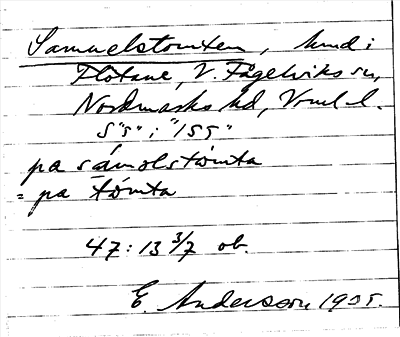 Samuelstomten, hmd i
Flötane, V. Fågelviks sn,
Nordmarks hd, Vrml l.
S "5" i "155"
pa sámolstòmta
= pa tòmta
47: 13 3/7 ob.
E. Anderson 1935.